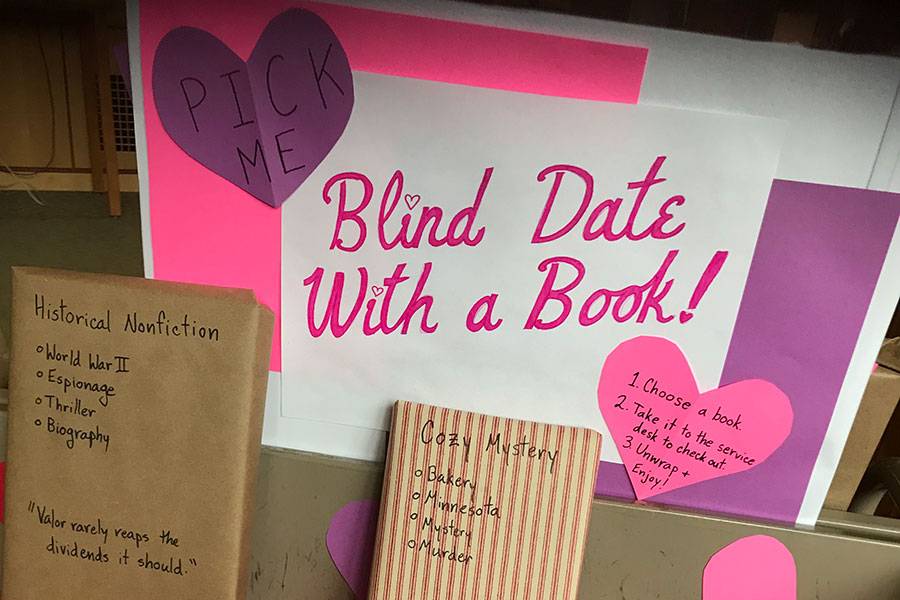 PICK
ME
Blind Date
With a Book!
Historical Nonfiction
World War II
Espionage
Thriller
Biography
"Valor rarely reaps the
dividends it should."
Cozy Mystery
Bakery
Minnesota
Mystery
Murder
1. Choose a book.
2. Take it to the service
desk to check out.
3. Unwrap +
Enjoy!